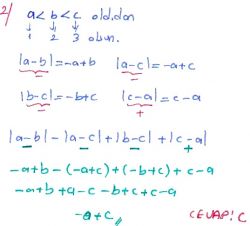 2) a < b < c olduğundan
↓ ↓ ↓
1 2 3 olsun.
|a-b| = -a+b |a-c| = -a+c
- -
|b-c| = -b+c |c-a| = c-a
- +
|a-b| - |a-c| + |b-c| + |c-a|
- - - +
-a+b - (-a+c) + (-b+c) + c-a
-a+b +a-c -b+c +c-a
-a+c // CEVAP: C